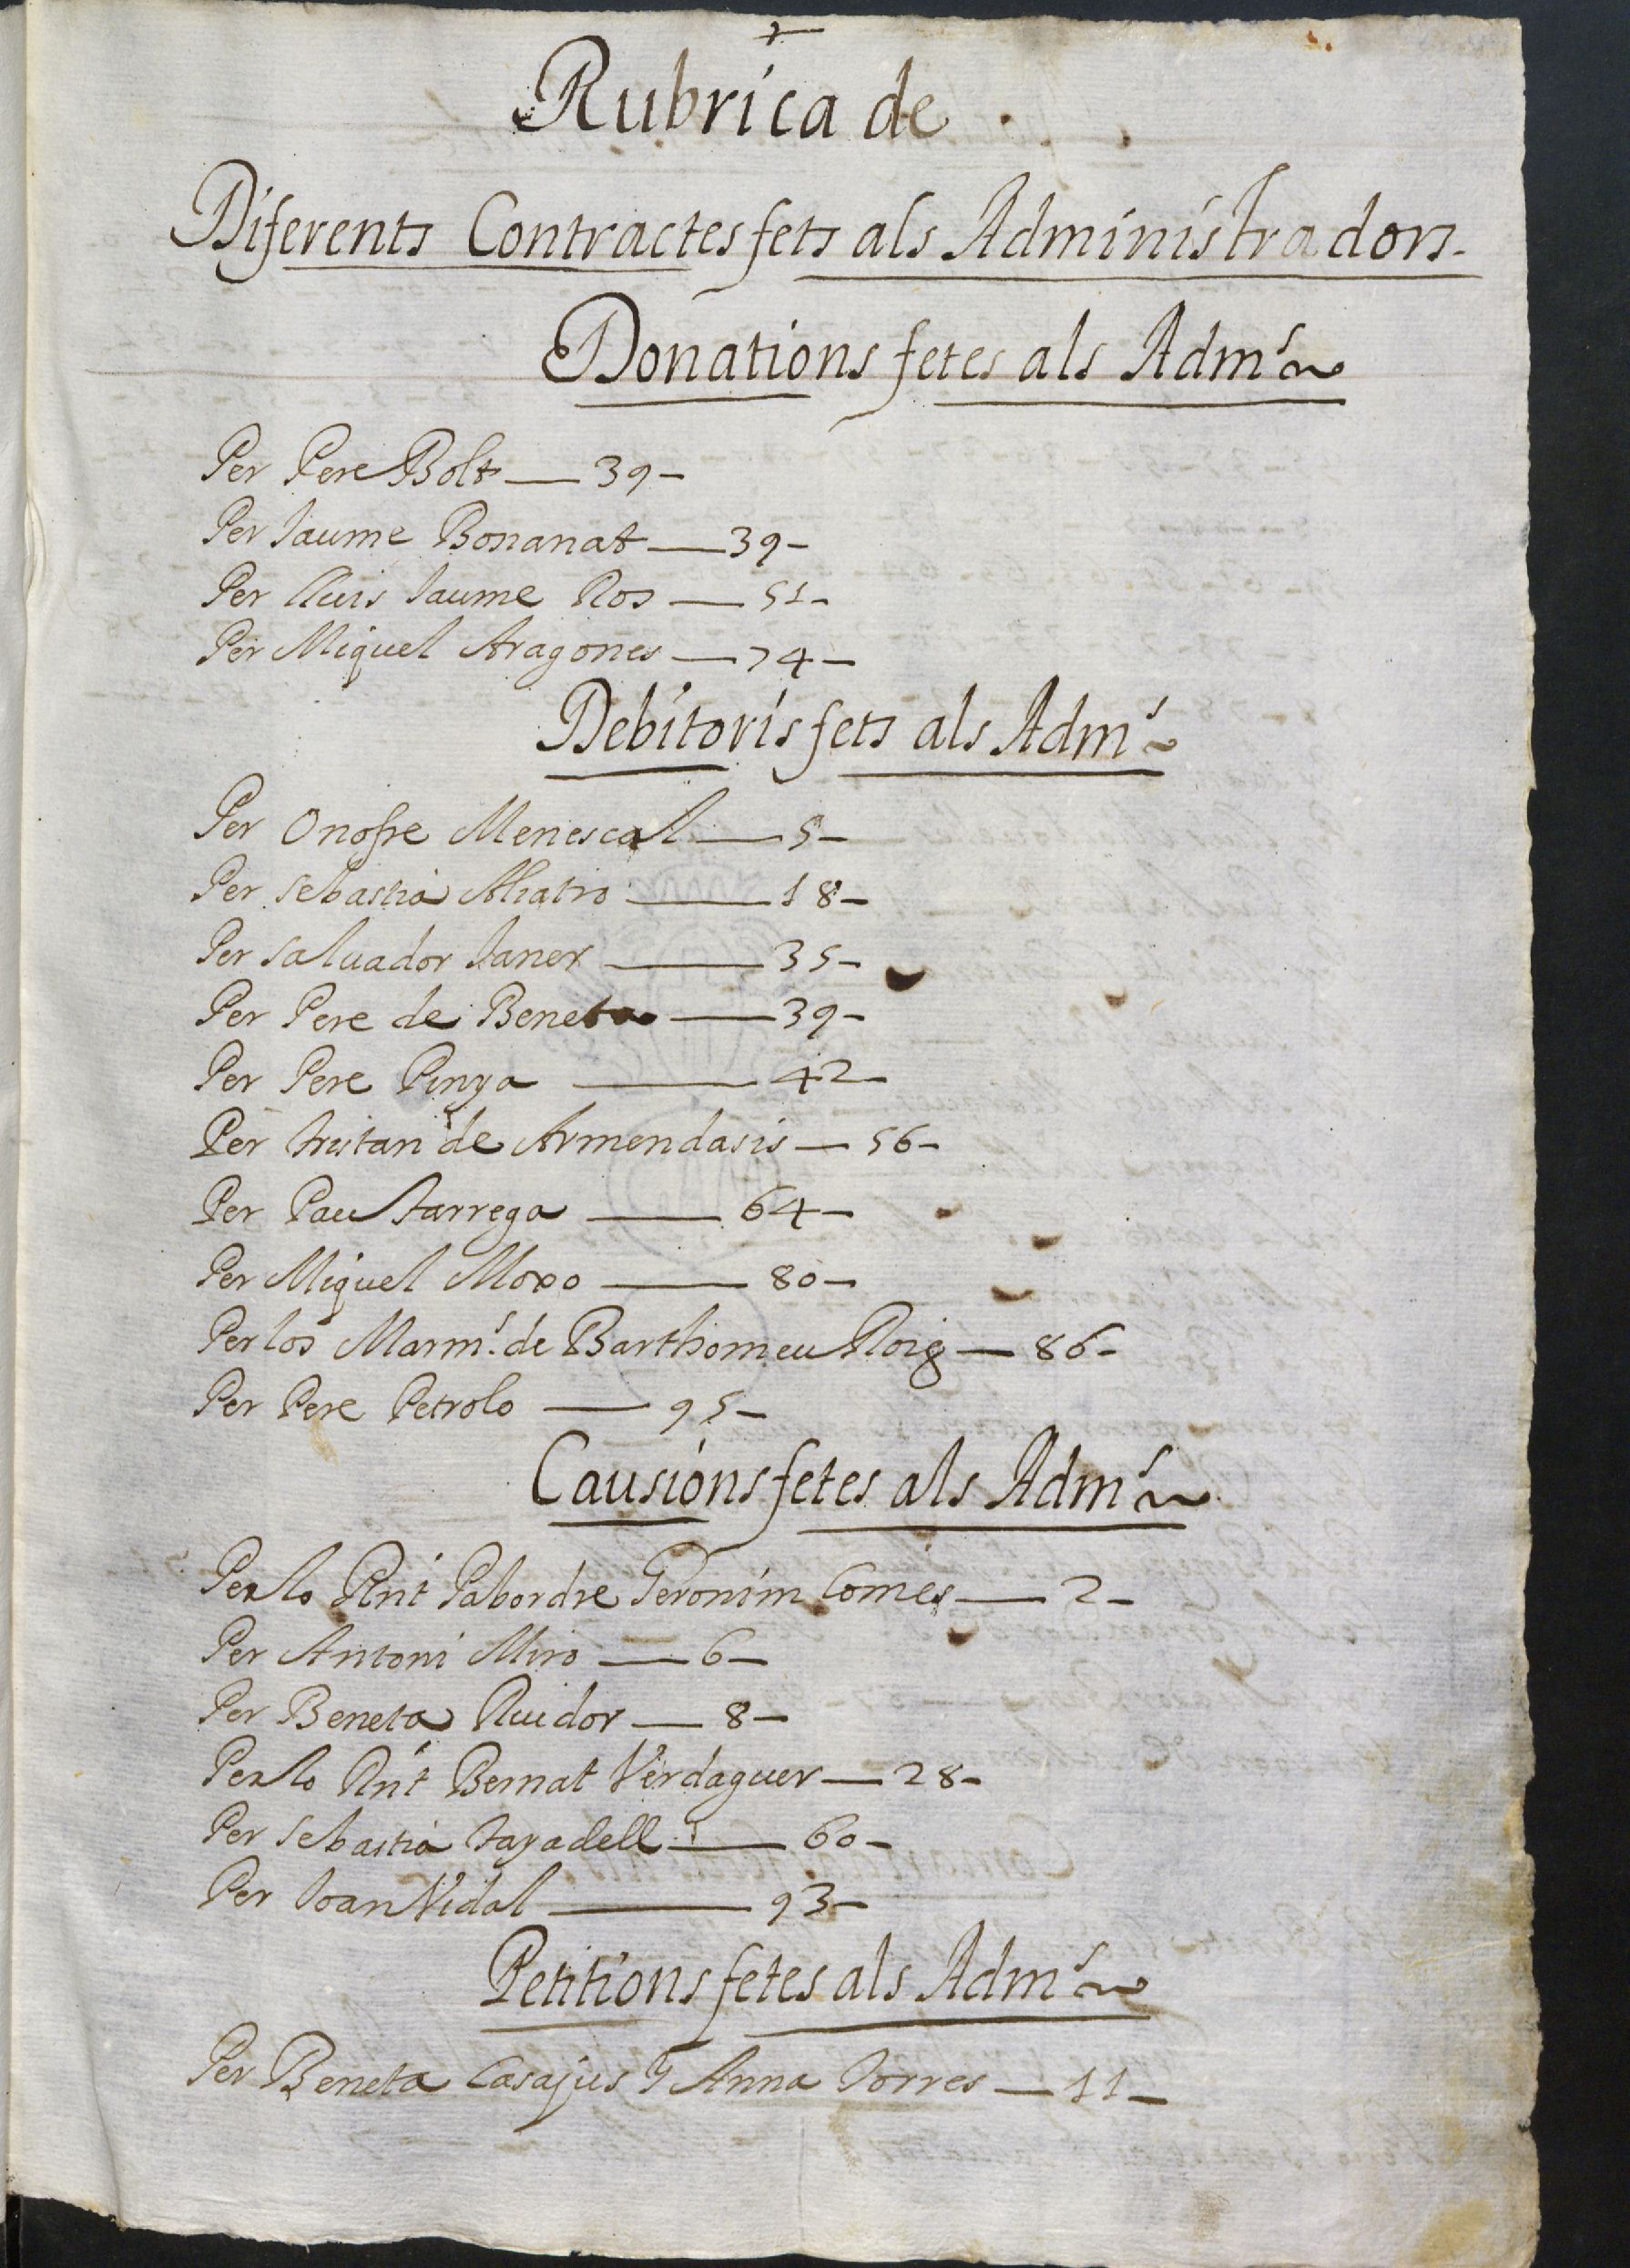 Rubrica de
Diferents Contractes fets als Administradors.
Donations fetes als Adm.s
Per Pere Bolt — 39 —
Per Jaume Bonanat — 39 —
Per Lluis Jaume Ros — 51 —
Per Miquel Aragones — 74 —
Debitoris fets als Adm.s
Per Onofre Menescal — 5 —
Per Sebastià — 18 —
Per Saluador Janer — 35 —
Per Pere de Beneta — 39 —
Per Pere Pinya — 42 —
Per Tristan de Armendasis — 56 —
Per Pau Tarrega — 64 —
Per Miquel Moxo — 80 —
Per los Marm.s de Barthomeu Roig — 86 —
Per Pere Petrolo — 95 —
Causions fetes als Adm.s
Per lo Rnt Pabordre Geronim Comes — 2 —
Per Antoni Miro — 6 —
Per Beneta Ruidor — 8 —
Per lo Rnt Bernat Verdaguer — 28 —
Per Sebastià Tayadell — 60 —
Per Joan Vidal — 93 —
Petitions fetes als Adm.s
Per Beneta Casajus y Anna Torres — 11 —